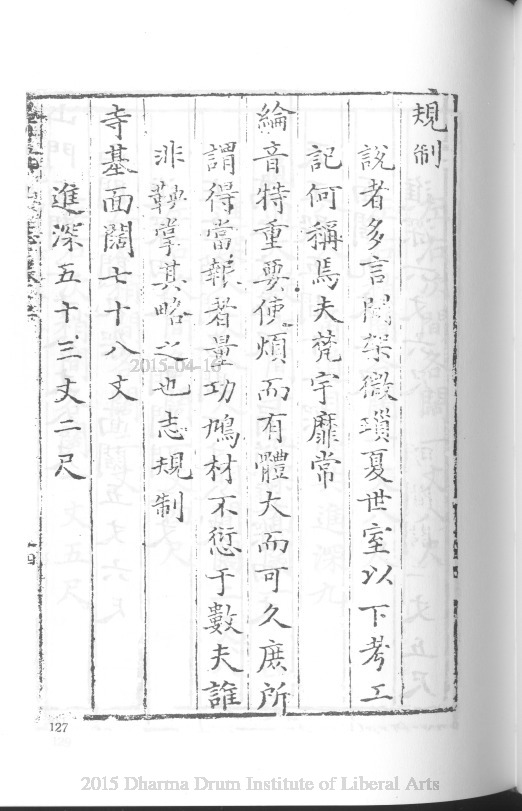 規制
說者多言間架微瑣夏世室以下考工
記何稱焉夫梵宇靡常
綸音特重要使煩而有體大而可久庶所
謂得當報者量功鳩材不愆于數夫誰
非鞅掌其略之也志規制
寺基面闊七十八丈
進深五十三丈二尺
127
2015-04-16
2015 Dharma Drum Institute of Liberal Arts